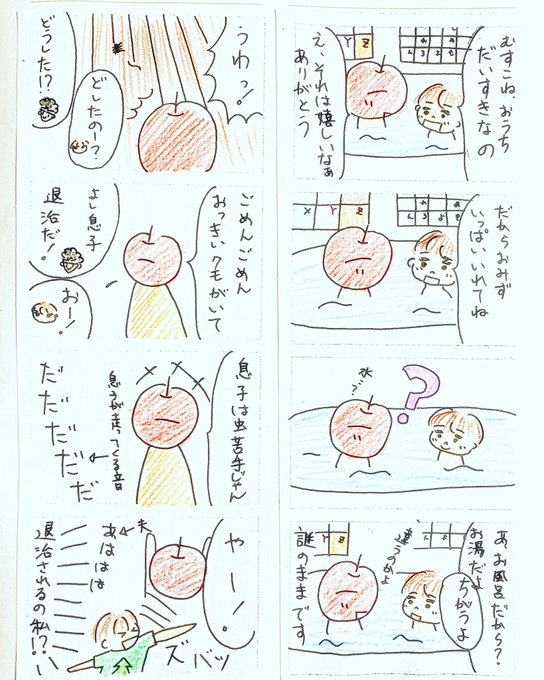 むすこね、おうち
だいすきなの
え、それは嬉しいなぁ
ありがとう
だからおみず
いっぱいいれてね
水…?
?
あ、お風呂だから?
お湯だよ
ちがうよ
違うのかよ
誰のままです
うわっ!
どしたのー?
どうした!?
ごめんごめん
おっきいクモがいて
よし息子
退治だ!
おー!
息子は虫苦手じゃん
息子が走ってくる音
だだだだだ
やー!
夫
あははは
ズバッ
退治されるの私!?